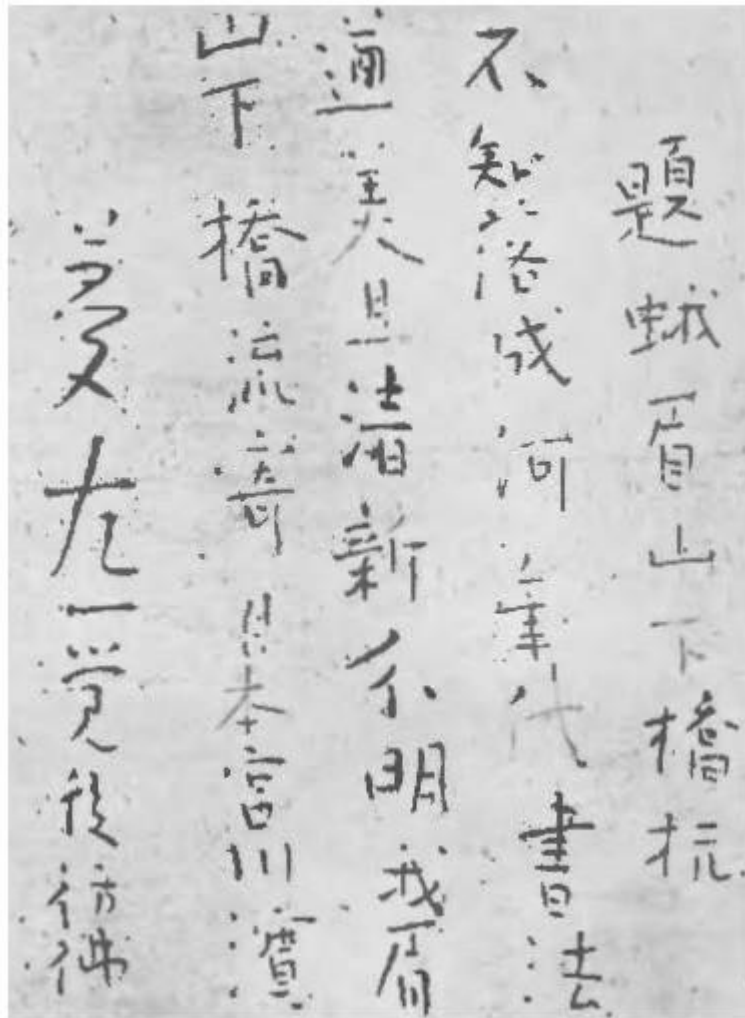 題蛾眉山下橋杭
不知落成何年代書法
遒美且清新分明我眉
山下橋流寄日本宮川濱
夢左一覚後彷彿